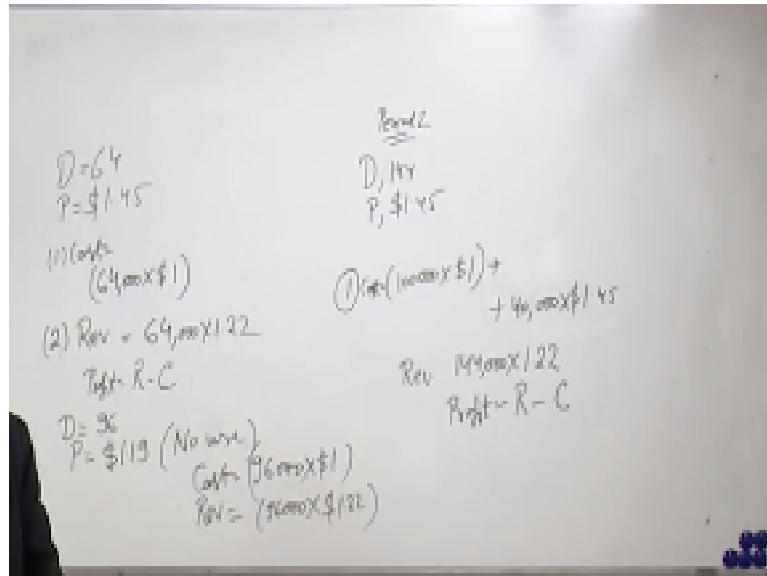 D=64
P=$1.45
(1) Cost=
(64,000x$1)
(2) Rev = 64,000x1.22
Profit= R-C
D= 96
P= $1.19 (No use)
Cost= (96000x$1)
Rev= (96000x$1.22)
Period 2
D, 144
P, $1.45
(1) Cost (100000x$1) +
+ 40,000x$1.45
Rev 144,000x1.22
Profit= R-C